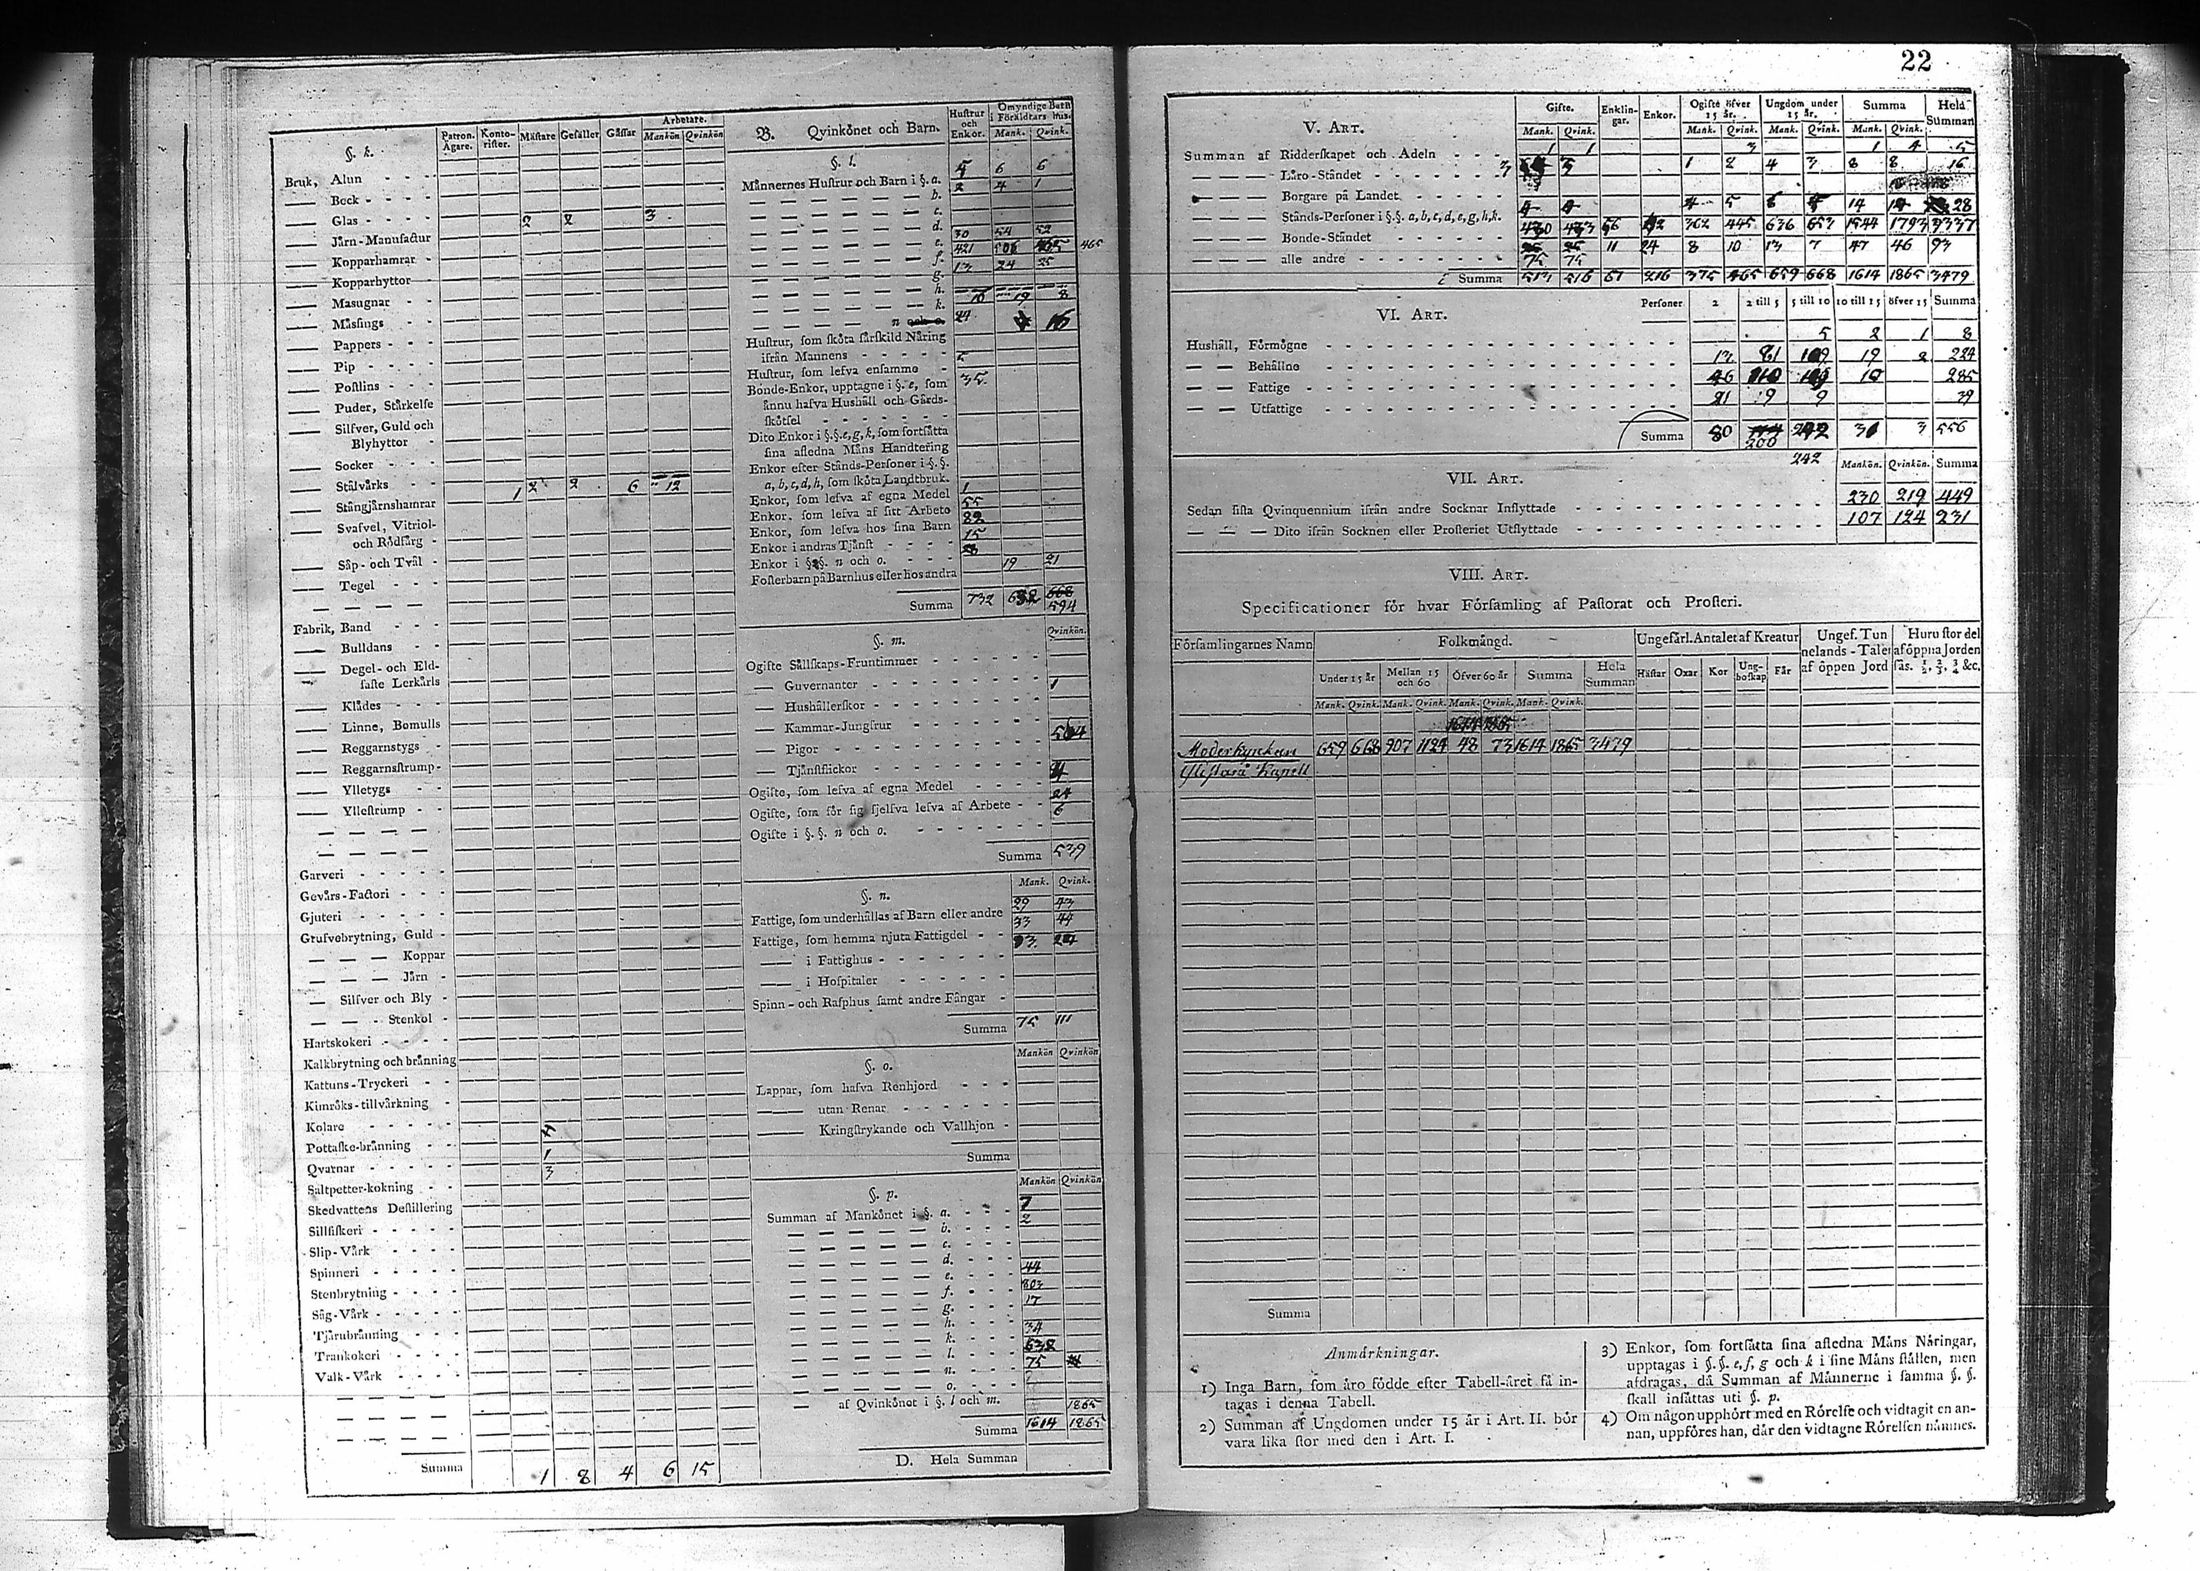 22
§. k.
Patron. Ägare.
Konto-rister.
Mästare
Gesäller
Gåssar
Arbetare.
Mankön
Qvinkön
Bruk, Alun
Beck
Glas 2 2 3
Järn-Manufactur
Kopparhamrar
Kopparhyttor
Masugnar
Mässings
Pappers
Pip
Postlins
Puder, Stärkelse
Silfver, Guld och
Blyhyttor
Socker
Stålvärks
Stångjärnshamrar 1 2 2 6 12
Svafvel, Vitriol-
och Rödfärg
Såp- och Tvål
Tegel
Fabrik, Band
Bulldans
Degel- och Eld-
faste Lerkärls
Klädes
Linne, Bomulls
Reggarnstygs
Reggarnsstrump-
Ylletygs
Yllestrump
Garveri
Gevärs-Factori
Gjuteri
Grufvebrytning, Guld
Koppar
Järn
Silfver och Bly
Stenkol
Hartskokeri
Kalkbrytning och bränning
Kattuns-Tryckeri
Kimröks-tillvärkning
Kolare
Pottaske-bränning
Qvarnar 1
Saltpetter-kokning 3
Skedvattens Destillering
Sillfiskeri
Slip-Värk
Spinneri
Stenbrytning
Såg-Värk
Tjärubränning
Trankokeri
Valk-Värk
Summa 1 8 4 6 15
B. Qvinkönet och Barn.
Hustrur och Enkor.
Omyndige Barn i Föräldrars hus.
Mank. Qvink.
§. l.
Männernes Hustrur och Barn i §. a. 6 6
b. 2 4 1
c.
d.
e. 30 54 52
f. 421 465
g. 13 24 25
h.
k. 10 19 8
n och o. 24
Hustrur, som sköta särskild Näring
ifrån Mannens
Hustrur, som lefva ensamme
Bonde-Enkor, upptagne i §. e, som 35
ännu hafva Hushåll och Gårds-
skötsel
Dito Enkor i §.§. e, g, k, som fortsätta
sina afledna Mäns Handtering
Enkor efter Stånds-Personer i §.§.
a, b, c, d, h, som sköta Landtbruk.
Enkor, som lefva af egna Medel 1
Enkor, som lefva af sitt Arbete 55
Enkor, som lefva hos sina Barn 82
Enkor i andras Tjänst 15
Enkor i §.§. n och o.
Fosterbarn på Barnhus eller hos andra 19 21
Summa 732 668
594
§. m.
Qvinkön.
Ogifte Sällskaps-Fruntimmer
Guvernanter
Hushållerskor 1
Kammar-Jungfrur
Pigor 504
Tjänstflickor
Ogifte, som lefva af egna Medel
Ogifte, som för sig sjelfva lefva af Arbete 24
Ogifte i §.§. n och o. 6
Summa 539
§. n.
Mank. Qvink.
Fattige, som underhållas af Barn eller andre 29 43
Fattige, som hemma njuta Fattigdel 33 44
i Fattighus 13 24
i Hospitaler
Spinn- och Rasphus samt andre Fångar
Summa 75 111
§. o.
Mankön Qvinkön
Lappar, som hafva Renhjord
utan Renar
Kringstrykande och Vallhjon
Summa
§. p.
Mankön Qvinkön
Summan af Mankönet i §. a. 7
b. 2
c.
d.
e. 44
f. 803
g. 17
h.
k. 34
l. 638
n. 75
o.
af Qvinkönet i §. l och m. 1865
Summa 1614 1865
D. Hela Summan
V. Art.
Gifte. Mank. Qvink.
Enklin-gar.
Enkor.
Ogifte öfver 15 år. Mank. Qvink.
Ungdom under 15 år. Mank. Qvink.
Summa Mank. Qvink.
Hela Summan
Summan af Ridderskapet och Adeln 1 1 3 1 4 5
Läro-Ståndet 3 3 1 2 4 3 8 8 16
Borgare på Landet
Stånds-Personer i §.§. a, b, c, d, e, g, h, k. 4 4 4 5 6 14 28
Bonde-Ståndet 430 433 56 192 362 445 636 653 1544 1793 3337
alle andre 11 24 8 10 13 7 47 46 93
75 75
Summa 513 516 67 216 375 465 659 668 1614 1865 3479
VI. Art.
Personer 2 2 till 5 5 till 10 10 till 15 öfver 15 Summa
Hushåll, Förmögne 5 2 1 8
Behållne 13 81 109 19 2 224
Fattige 46 110 119 10 285
Utfattige 21 9 9 39
Summa 80 200 242 31 3 556
242
VII. Art.
Mankön. Qvinkön. Summa
Sedan sista Qvinquennium ifrån andre Socknar Inflyttade 230 219 449
Dito ifrån Socknen eller Prosteriet Utflyttade 107 124 231
VIII. Art.
Specificationer för hvar Församling af Pastorat och Prosteri.
Församlingarnes Namn
Folkmängd.
Ungefärl. Antalet af Kreatur
Ungef. Tunnelands-Talet af öppen Jord
Huru stor del af öppna Jorden sås. 1/2, 2/3, 3/4 &c.
Under 15 år Mellan 15 och 60 Öfver 60 år Summa Hela Summan Hästar Oxar Kor Ung-boskap Får
Mank. Qvink. Mank. Qvink. Mank. Qvink. Mank. Qvink.
Moderkyrkan 659 668 907 1124 48 73 1614 1865 3479
Kapell
Summa
Anmärkningar.
1) Inga Barn, som äro födde efter Tabell-året få in-
tagas i denna Tabell.
2) Summan af Ungdomen under 15 år i Art. II. bör
vara lika stor med den i Art. I.
3) Enkor, som fortsätta sina afledna Mäns Näringar,
upptagas i §.§. e, f, g och k i sine Mäns ställen, men
afdragas, då Summan af Männerne i samma §.§.
skall insättas uti §. p.
4) Om någon upphört med en Rörelse och vidtagit en an-
nan, uppföres han, där den vidtagne Rörelsen nämnes.